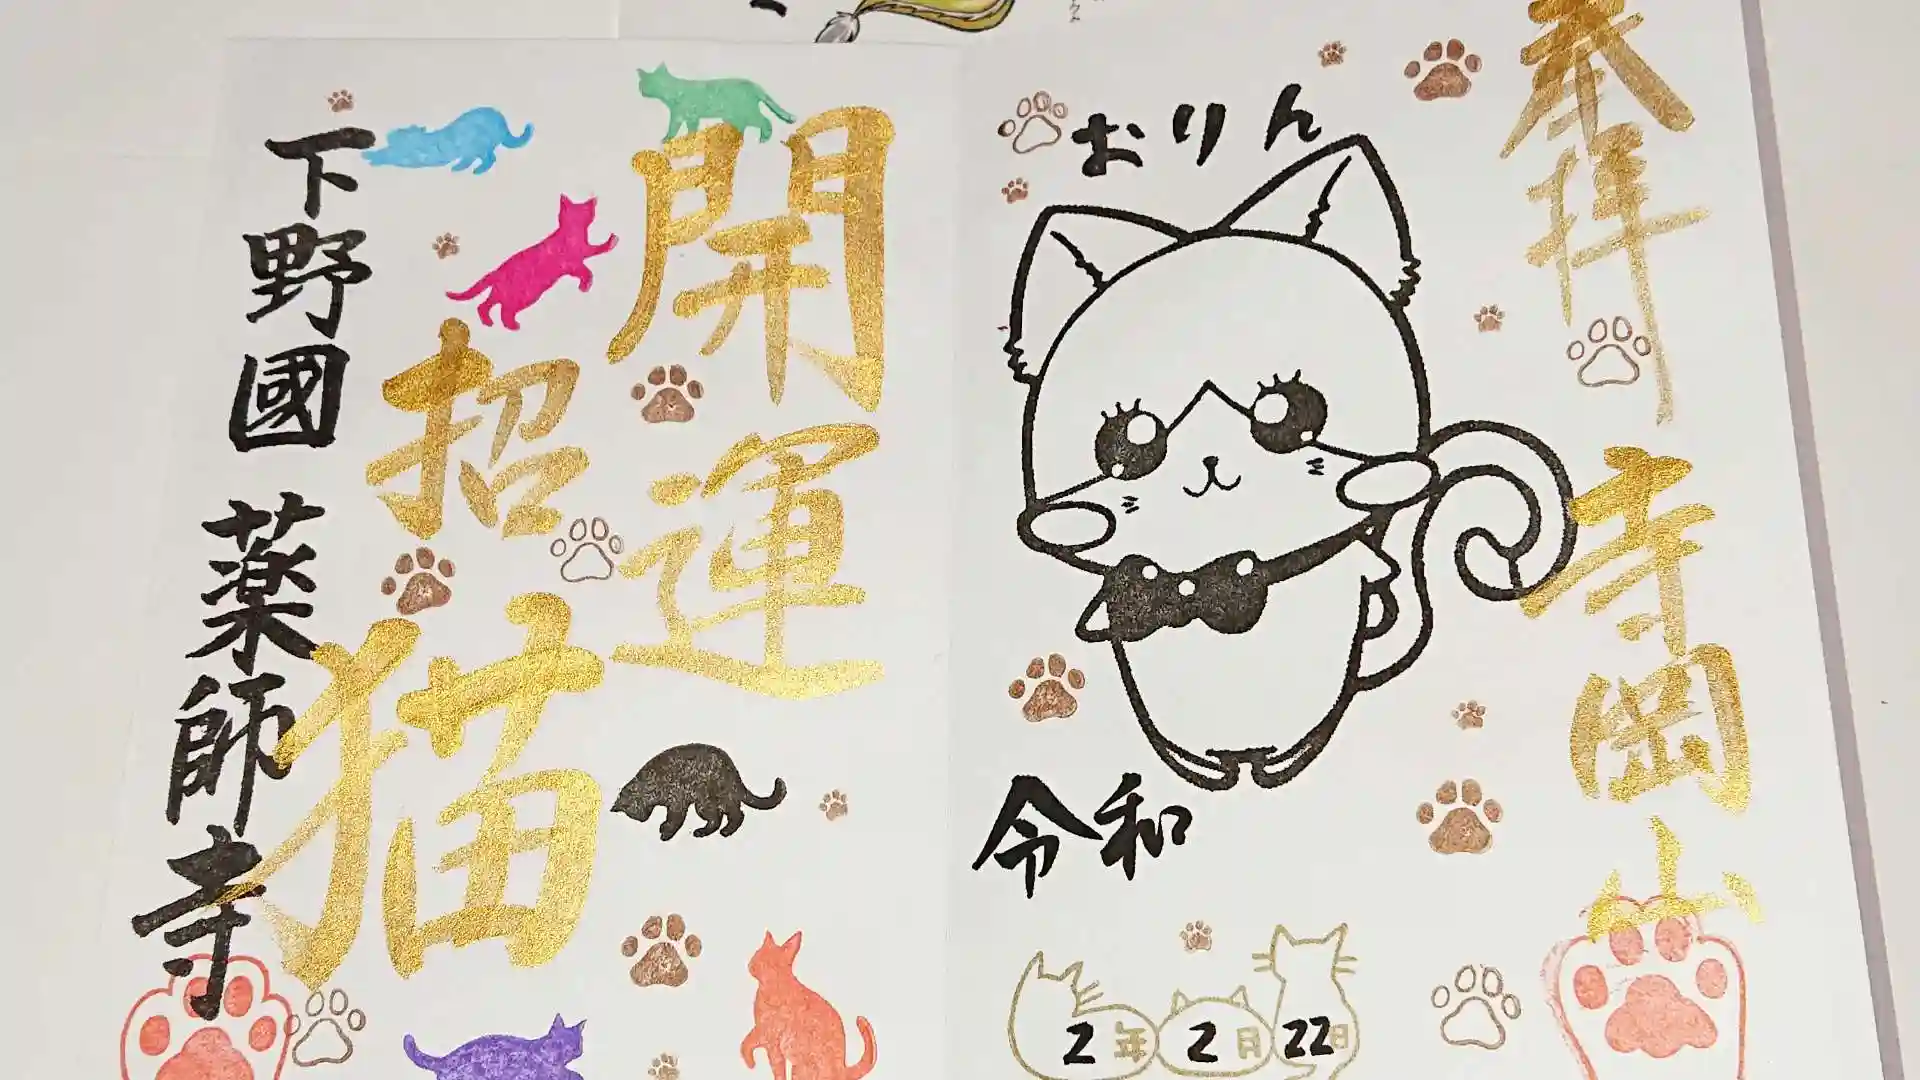 奉拝 寺岡山
おりん
令和
2年2月22日
開運
招猫
下野國 薬師寺